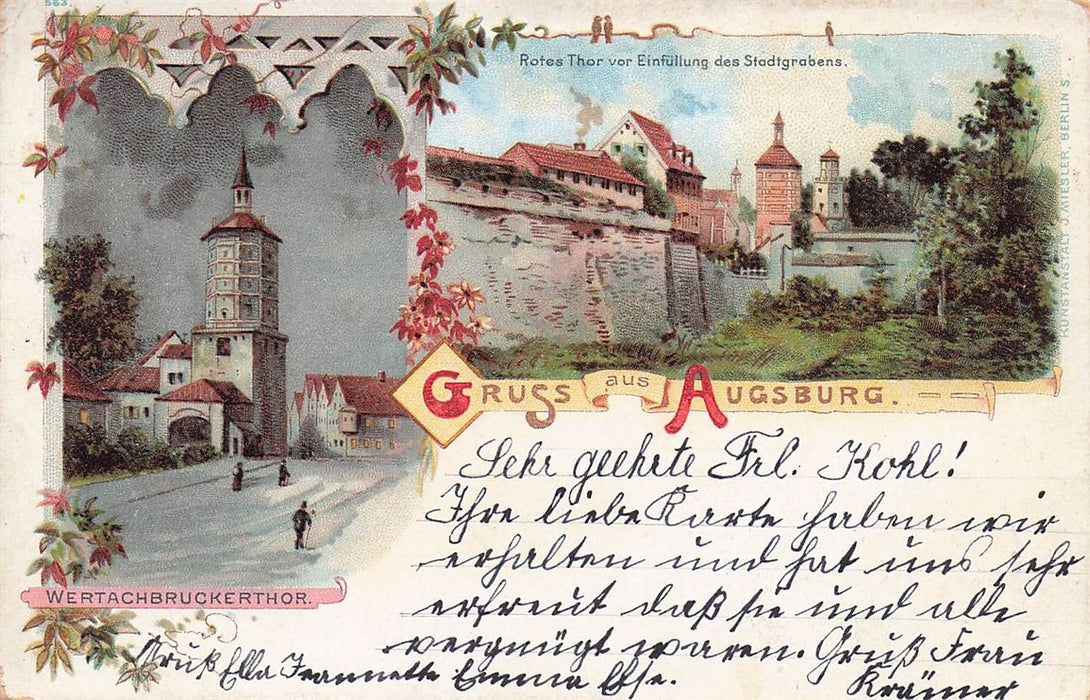 563.
Rotes Thor vor Einfüllung des Stadtgrabens.
KUNSTANSTALT J. MIESLER, BERLIN S.
GRUSS AUS AUGSBURG.
WERTACHBRUCKERTHOR.
Sehr geehrte Frl. Kohl!
Ihre liebe Karte haben wir
erhalten und hat uns sehr
erfreut daß sie und alle
vergnügt waren. Gruß Frau
Krämer
Gruß Ella Jeannette Emma Else.